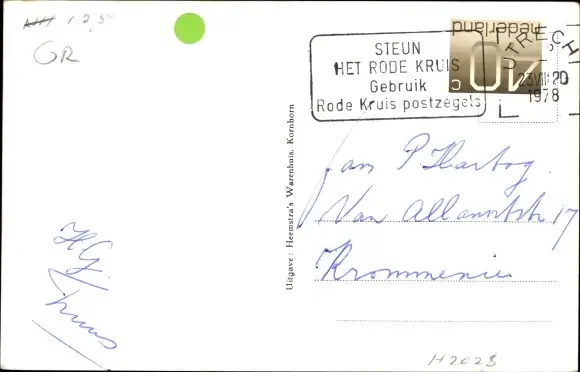 12,50
GR
STEUN
HET RODE KRUIS
Gebruik
Rode Kruis postzegels
nederland
40 c
UTRECHT
23.VIII.20
1978
Uitgave: Heemstra's Warenhuis, Kornhorn
fam P Hartog.
Van Allanvtstr 17
Krommenie
HG.
Huus
H2028